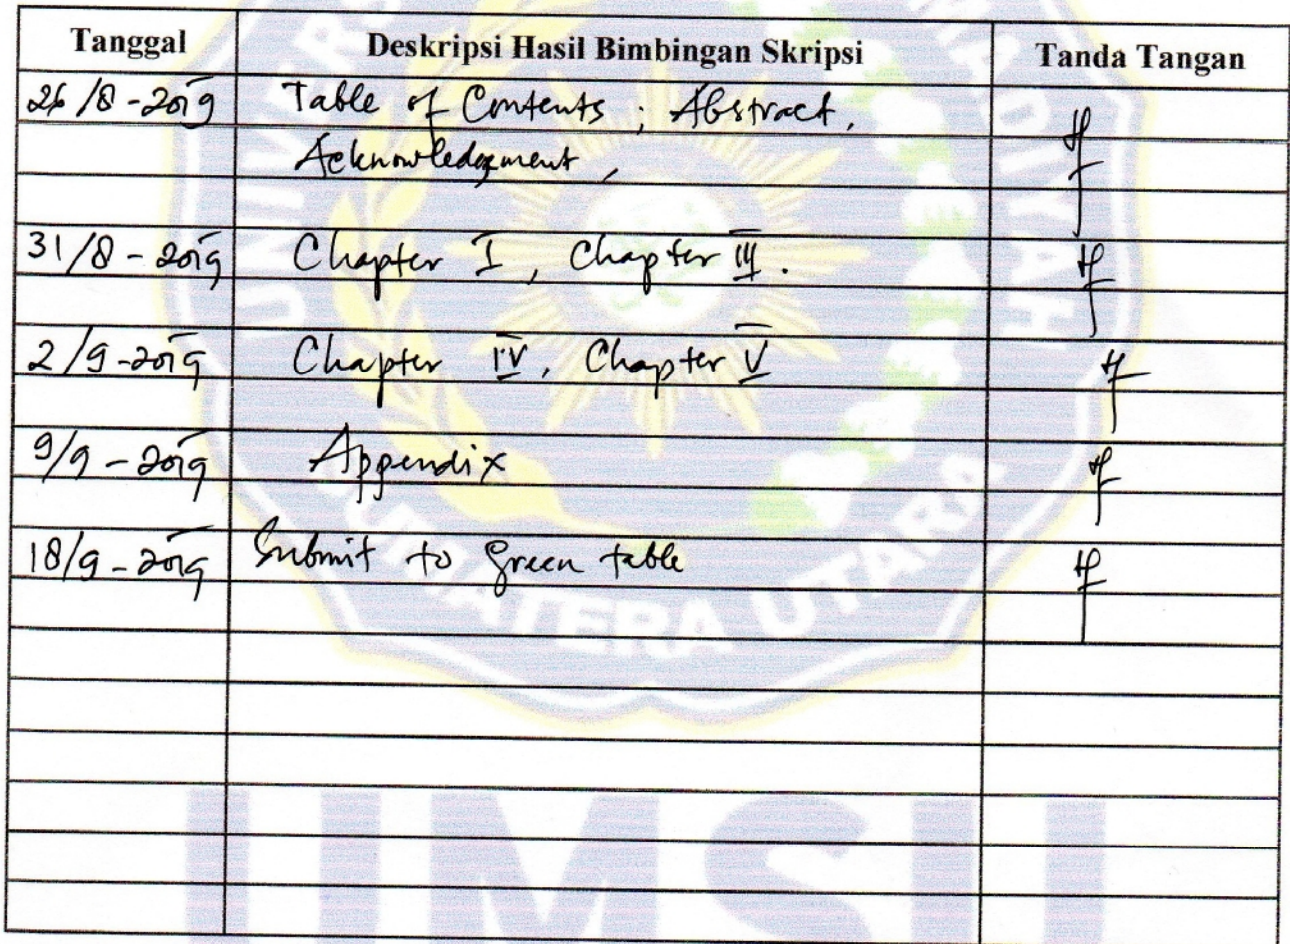 Tanggal Deskripsi Hasil Bimbingan Skripsi Tanda Tangan
26/8-2019 Table of Contents ; Abstract,
Acknowledgment,
31/8-2019 Chapter I, Chapter III.
2/9-2019 Chapter IV, Chapter V
9/9-2019 Appendix
18/9-2019 Submit to green table
UMSU